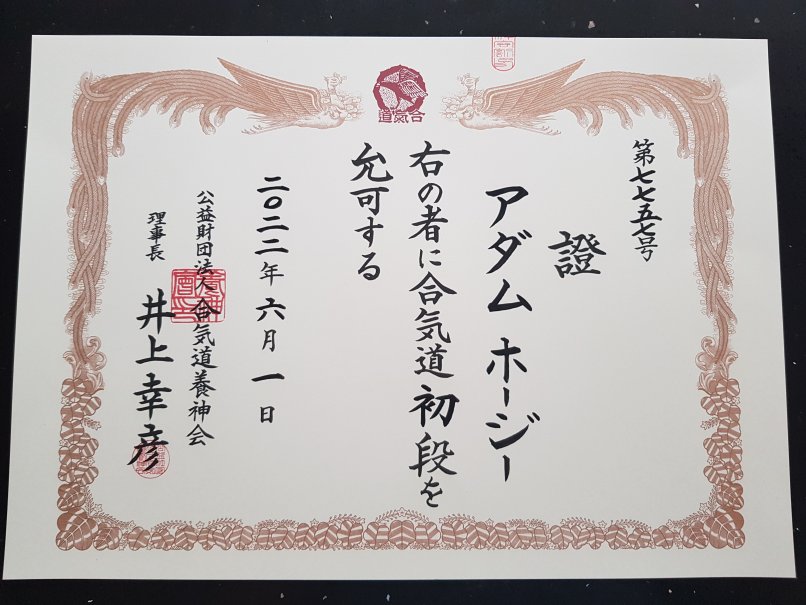 合氣道
第七七五七号
證
アダム ホージー
右の者に合気道初段を
允可する
二〇二二年六月一日
公益財団法人合気道養神会
理事長 井上幸彦